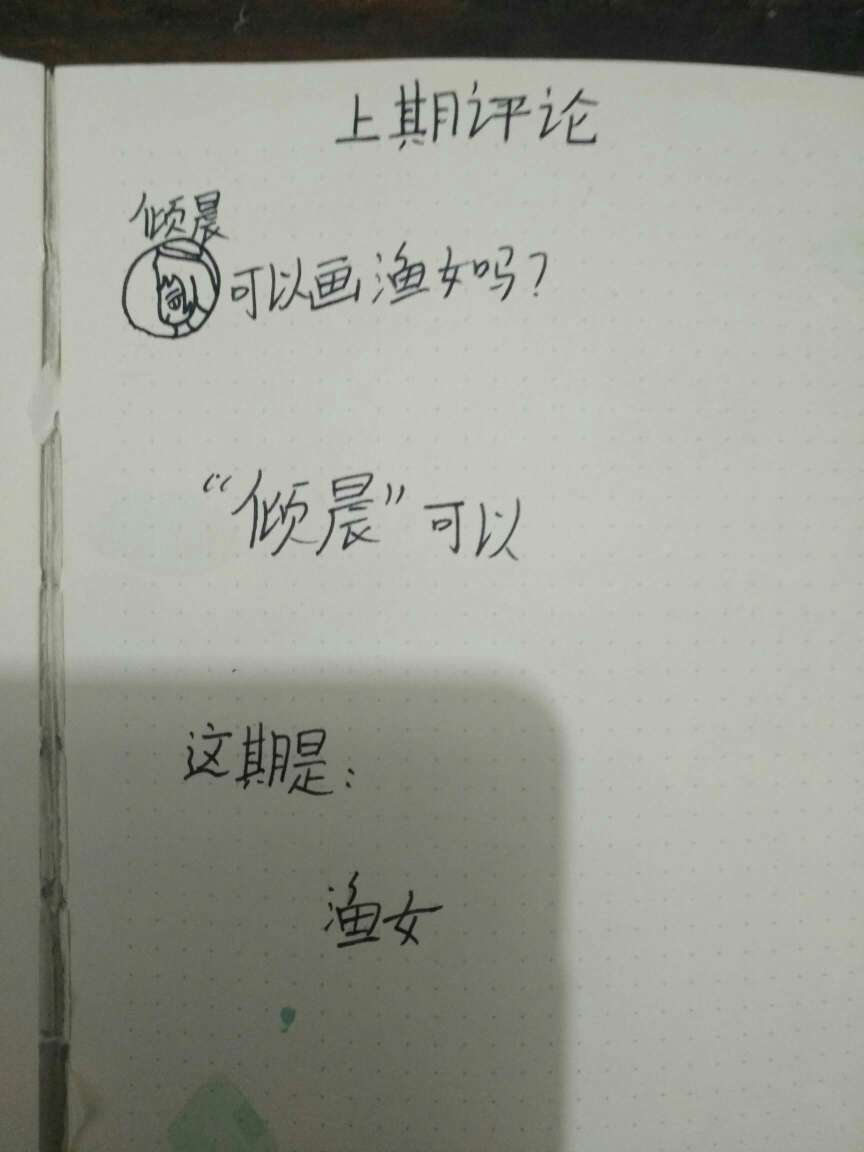 上期评论
倾晨
可以画渔女吗?
“倾晨”可以
这期是:
渔女